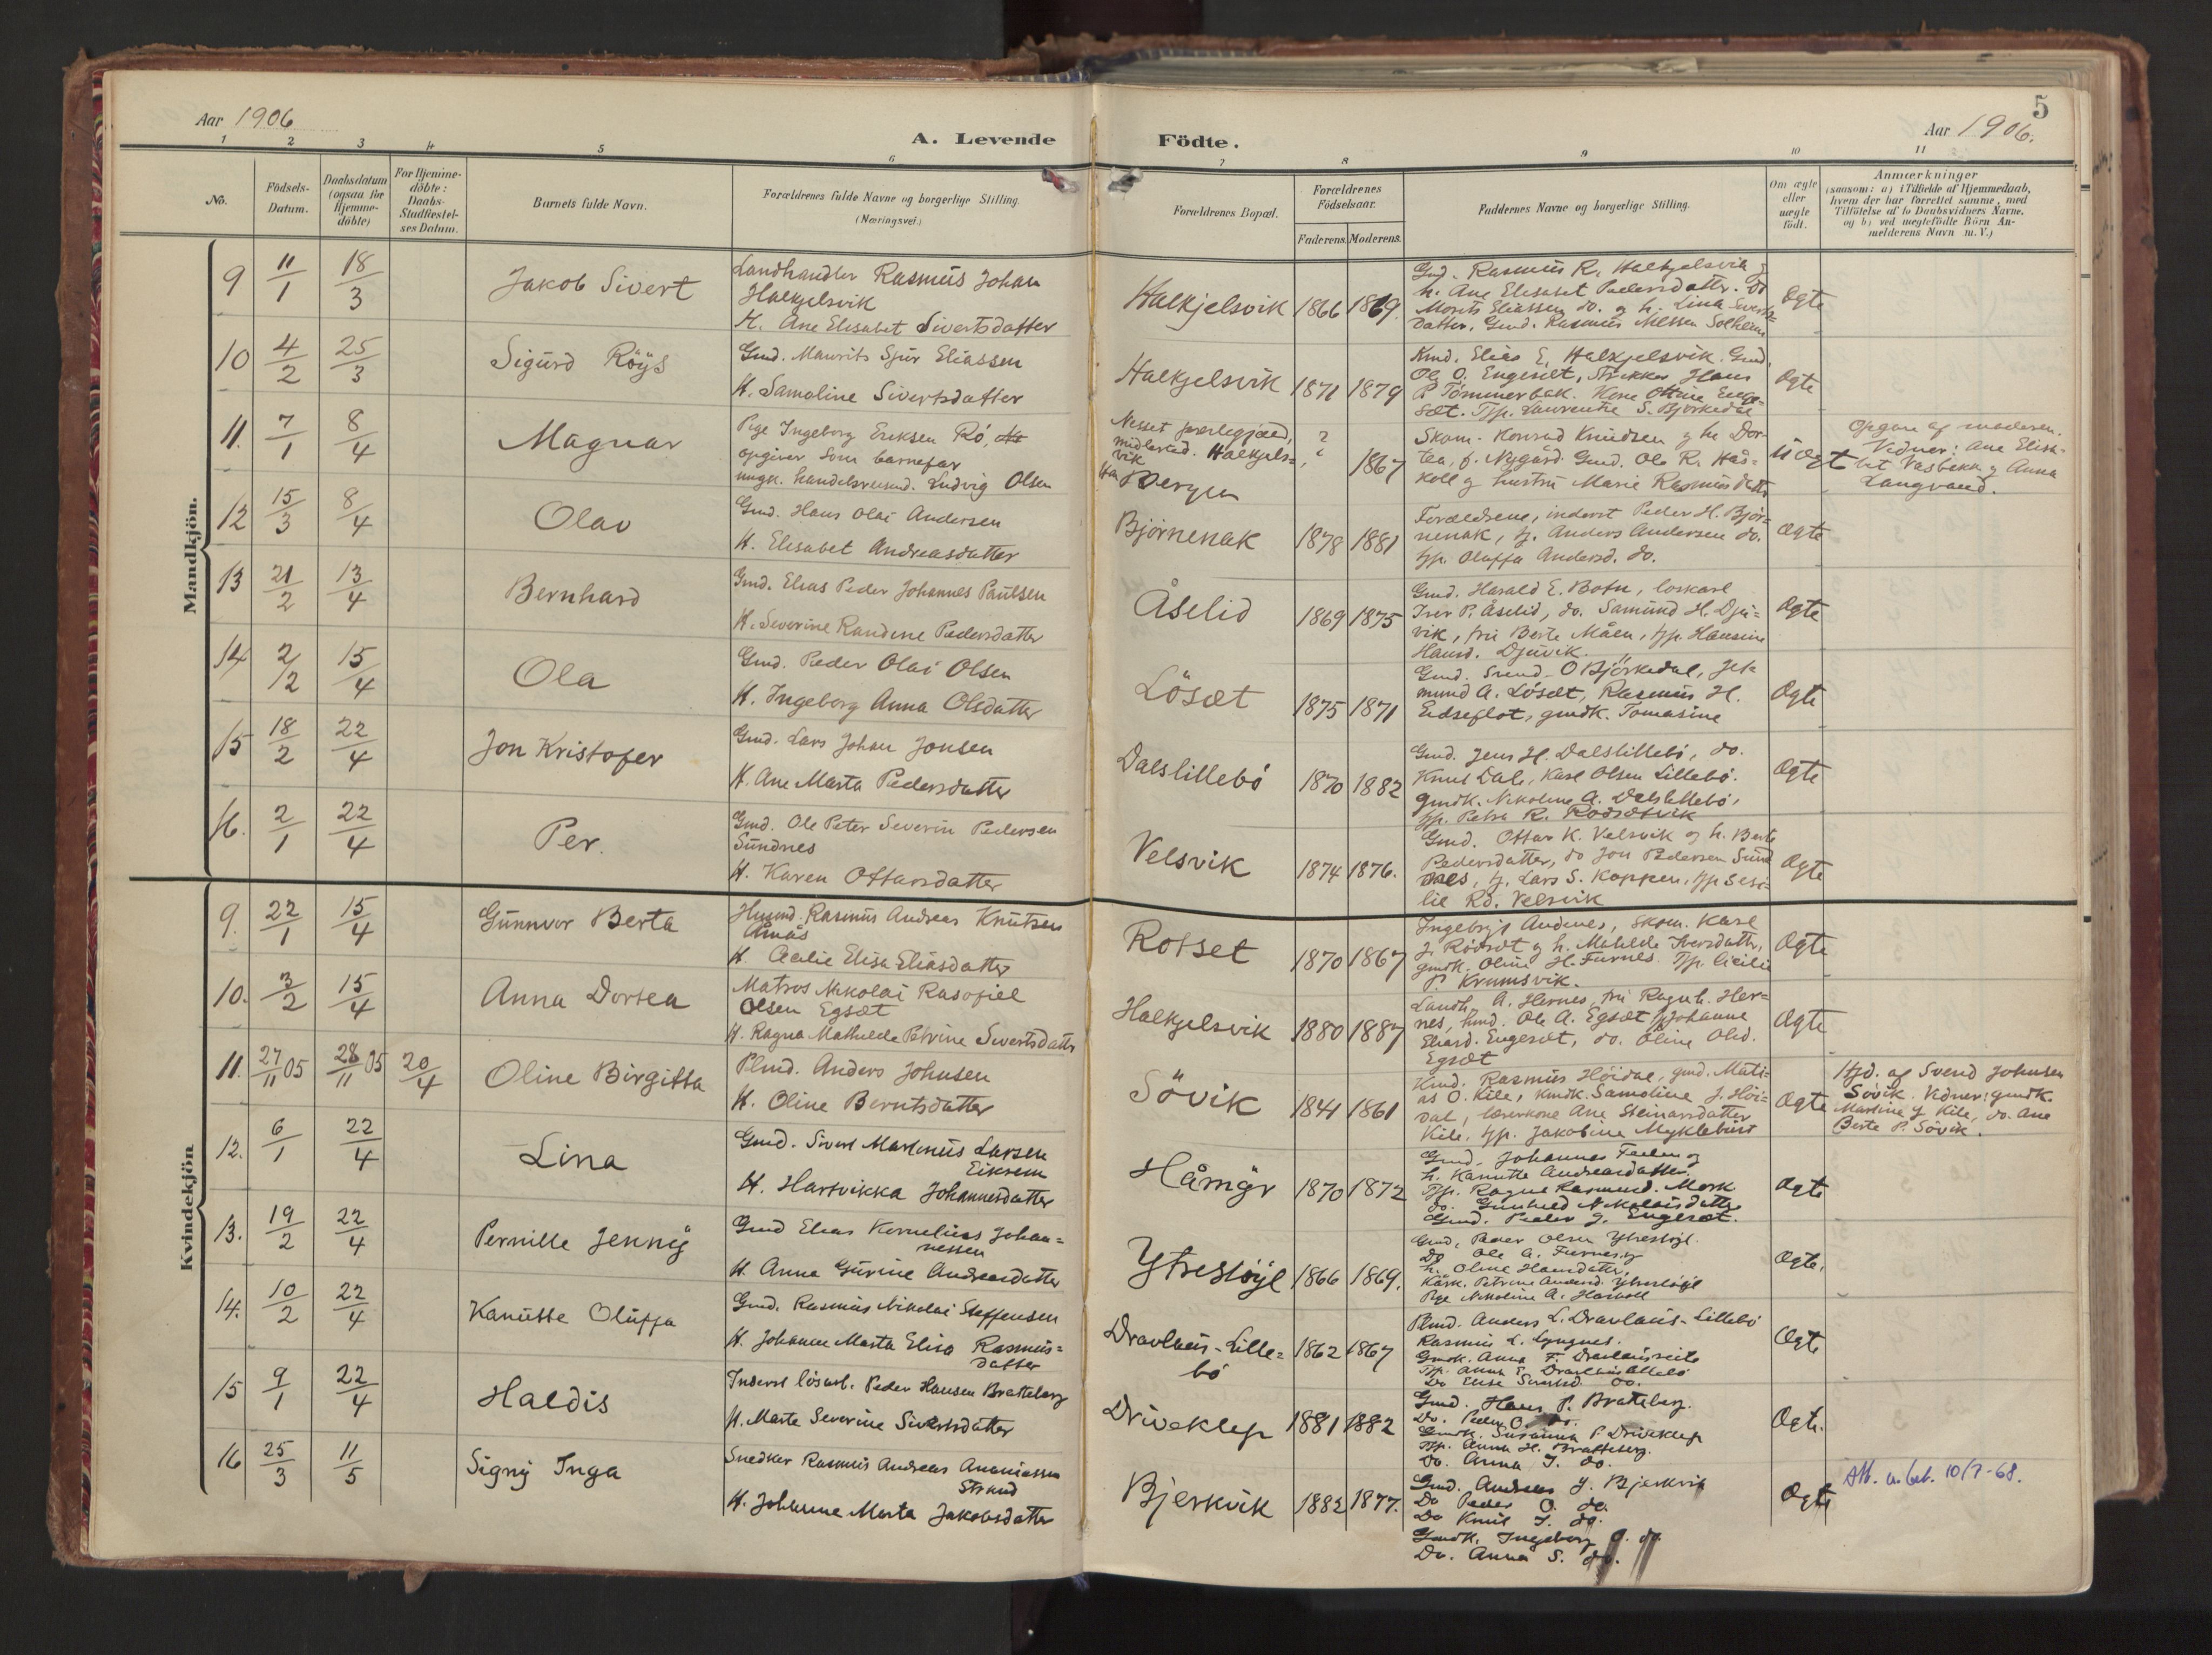 Aar 1906
A. Levende Födte.
5
Aar 1906.
1 2 3 4 5 6 7 8 9 10 11
No.
Födsels-
Datum.
Daabsdatum
(ogsaa for
Hjemme-
döbte)
For Hjemme-
döbte:
Daabs-
Stadfæstel-
ses Datum.
Barnets fulde Navn.
Forældrenes fulde Navne og borgerlige Stilling.
(Næringsvei.)
Forældrenes Bopæl.
Forældrenes
Födselsaar.
Faderens. Moderens.
Faddernes Navne og borgerlige Stilling.
Om ægte
eller
uægte
födt.
Anmærkninger
(saasom: a) i Tilfælde af Hjemmedaab,
hvem der har forrettet samme, med
Tilföielse af to Daabsvidners Navne,
og b) ved uægtefödte Börn An-
melderens Navn m.V.)
Mandkjön.
9 11/1 18/3 Jakob Sivert
Landhandler Rasmus Johan
Halkjelsvik
H. Ane Elisabet Sivertsdatter
Halkjelsvik 1866 1869.
Gmd. Rasmus R. Halkjelsvik og
h. Ane Elisabet Pedersdatter. do
Morits Eliassen do. og h. Lina Siverts-
datter, Gmd. Rasmus Nilssen Solheim
Ægte
10 4/2 25/3 Sigurd Röys
Gmd. Maurits Sjur Eliassen
H. Samoline Sivertsdatter
Halkjelsvik 1871 1879
Kmd. Elias E. Halkjelsvik. Gmd.
Ol. O. Engeset, Hans
P. Tömmerbak. Kone Oline Enge-
sæt. Pp. Laurentse S. Björkedal
Ægte
11. 7/1 8/4 Magnar
Pige Ingeborg Eriksen Rö,
opgiver som barnefar
ungk. handelsreisend. Ludvig Olsen
Nesset prestegjæld,
midlertid. Halkjels-
vik
Han Bergen
? 1867
Skom. Konrad Knudsen og h. Dor-
tea, f. Nygård. Gmd. Ole R. Has-
koll og hustru Marie Rasmusdatter
Uægte
Opgave af moderen.
Vidner: Ane Elisa-
bet Vasbakk og Anna
Langvand.
12 15/3 8/4 Olav
Gmd. Hans Olai Andersen
H. Elisabet Andreasdatter
Björnenak 1878 1881
Forældrene, inderst Peder H. Björ-
nenak, g. Anders Andersen do.
pp. Oluffa Andersd. do.
Ægte
13 21/2 13/4 Bernhard
Gmd. Elias Peder Johannes Paulsen
H. Severine Randine Pedersdatter
Åselid 1869 1875
Gmd. Harald E. Botn, loskarl
Iver P. Åselid, do. Samund H. Dju-
vik, fru Berte Måen, pp. Hansine
Hansd. Djuvik.
Ægte
14 2/12 15/4 Ola
Gmd. Peder Olai Olsen
H. Ingeborg Anna Olsdatter
Lösæt 1875 1871
Gmd. Svend O Björkedal, Jet-
mund A. Lösæt, Rasmus H.
Eidseflot, gmdk. Tomasine
Ægte
15 18/2 22/4 Jon Kristofer
Gmd. Lars Johan Jonsen
H. Ane Marta Pedersdatter
Dalslillebö 1870 1882
Gmd. Jens H. Dalslillebö, do.
Knut Dale, Karl Olsen Lillebö.
gmdk. Nikoline A. Dalslillebö,
pp. Petra R. Rödsætvik
Ægte
16. 2/1 22/4 Per.
Gmd. Ole Peter Severin Pedersen
Sundnes
H. Karen Ottarsdatter
Velsvik 1874 1876.
Gmd. Ottar K. Velsvik og h. Berte
Pedersdatter, do Jon Pedersen Sund
nes, g. Lars S. Koppen, pp Sesi-
lie Rd. Velsvik
Ægte
Kvindekjön
9. 22/1 15/4 Gunnvor Berta
Husmd. Rasmus Andreas Knutsen
Åmås
H. Cecilie Elisa Eliasdatter
Rotset 1870 1867
Ingebrigt Andenes, skom. Karl
J. Rödsæt og h. Matilde Iversdatter,
gmdk. Oline H. Furnes. Pp. Cicilie
P. Krumsvik.
Ægte
10. 3/2 15/4 Anna Dortea
Matros Nikolai Rasofiel
Olsen Egsæt
H. Ragna Mathilde Petrine Sivertsdatter
Halkjelsvik 1880 1887
Landh. A. Hernes, fru Ragnh. Her-
nes, kmd. Ole A. Egsæt pp Johanne
Eliasd. Engesæt, do. Oline Olsd.
Egsæt
Ægte
11. 27/11 05 28/11 05 20/4 Oline Birgitta
Plmd. Anders Johnsen
H. Oline Berntsdatter
Sövik 1841 1861
Kmd. Rasmus Höidal, gmd. Mati-
as O. Kile, kmdk. Samoline J. Höi-
dal, lærerkone Ane Steinarsdatter
Kile, pp. Jakobine Myklebust
Ægte
Hjd. af Svend Johnsen
Sövik. Vidner: gmdk.
Martine J Kile, do. Ane
Berte P. Sövik.
12. 6/1 22/4 Lina
Gmd. Sivert Martinus Larsen
Eiksem
H. Hartvikka Johannesdatter
Håmyr 1870 1872
Gmd. Johannes og
h. Kanutte Andreasdatter.
Pp. Ragna Rasmusd. Mork
do. Gunhild Nikolaisdatter
Gmd. Peder J. Engeset.
Ægte
13. 19/2 22/4 Pernille Jenny
Gmd Elias Kornelius Johan-
nessen
H. Anna Gurine Andreasdatter
Ytrestöyl 1866 1869.
Gmd. Peder Olsen Ytrestöyl.
Do Ole A. Furnes og
h. Oline Hansdatter,
Kårk. Petrine Andersd. Ytrestöyl
Pige Nikoline A. Haskoll
Ægte.
14. 10/2 22/4 Kanutte Oluffa
Gmd. Rasmus Nikolai Steffensen
H. Johanne Marta Elisa Rasmus-
datter
Dravlaus-Lille-
bö
1862 1867
Plmd. Anders L. Dravlaus-Lillebö
Rasmus L. Lyngnes.
Gmdk. Anna F. Dravlausseite
Pp. Anna E. Dravlauslillebö
Do Elise Sivertsd. do.
Ægte
15 9/1 22/4 Haldis
Inderst lösarb. Peder Hansen Bratteberg
H. Marte Severine Sivertsdatter
Driveklep 1881 1882
Gmd. Hans P. Bratteberg.
Do. Peder O. do.
Gmdk. Susanna P Driveklep
Pp. Anna H. Bratteberg.
Do. Anna J. do.
Ægte.
16 25/3 11/5 Signy Inga
Snedker Rasmus Andreas Ananiassen
Strand
H. Johanne Marta Jakobsdatter
Bjerkvik 1882 1877.
Gmd. Andreas J. Bjerkvik
Do Peder O. do.
Do Knut J. do.
Gmdk. Ingeborg O. do.
Do. Anna S. do.
Ægte
Att. u. 10/7-68.